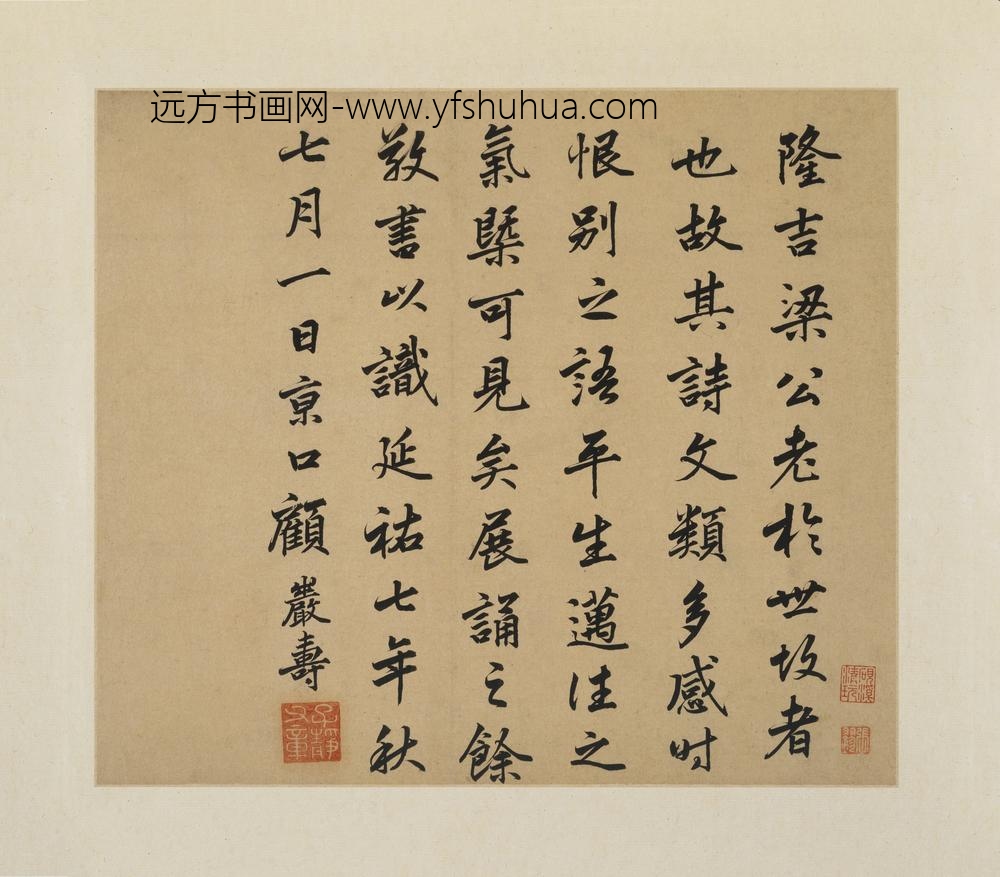 远方书画网-www.yfshuhua.com
隆吉梁公老於世故者
也故其詩文類多感时
恨别之語平生邁往之
氣槩可見矣展誦之餘
敬書以識延祐七年秋
七月一日京口顧巖壽